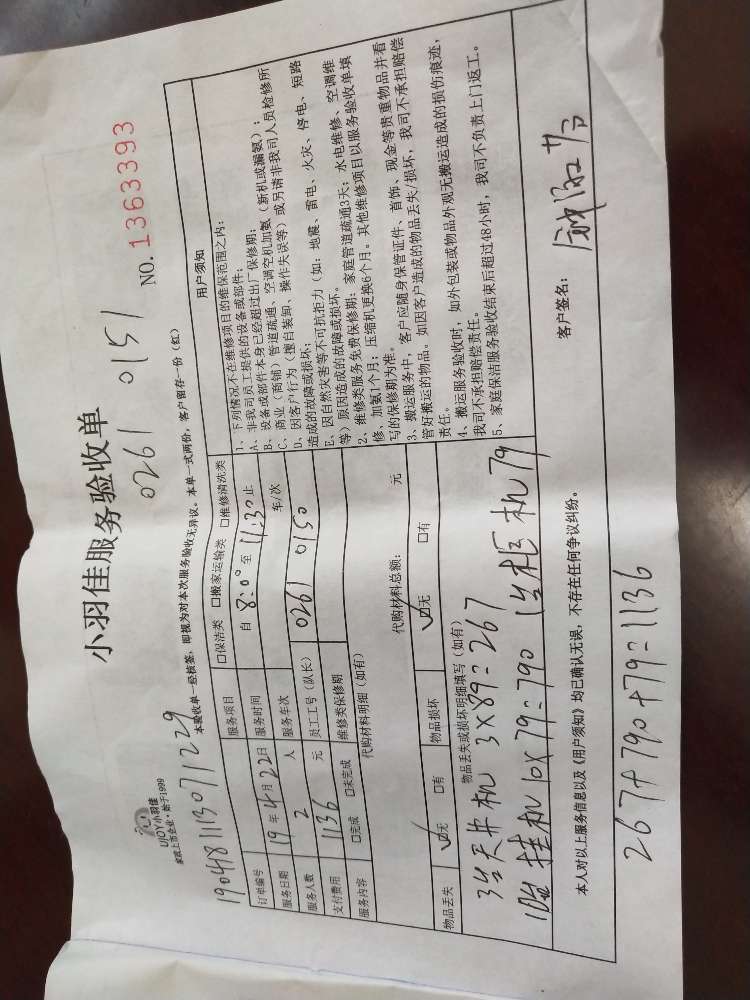 小羽佳服务验收单
0261 0151
NO. 1363393
UJOY小羽佳
家政上市企业·始于1999
本验收单一经核签，即视为对本次服务验收无异议。本单一式两份，客户留存一份（红）
190418111307 1229
订单编号
服务项目 □保洁类 □搬家运输类 □维修清洗类
服务日期 19年4月22日 服务时间 自 8:00 至 11:30 止
服务人数 2 人 服务车次 车/次
支付费用 1136 元 员工工号（队长） 0261 0150
服务内容 □完成 □未完成 维修类保修期
代购材料明细（如有）
代购材料总额： 元
物品丢失 ☑无 □有 物品损坏 ☑无 □有
物品丢失或损坏明细填写（如有）
3台天井机 3×89=267
10台挂机 10×79=790 1台柜机79
用户须知
1、下列情况不在维修项目的维保范围之内：
A、非我司员工提供的设备或部件；
B、设备或部件本身已经超过出厂保修期；
C、商业（商铺）管道疏通、空调空机加氨（新机或漏氨）；
D、因客户行为（擅自装卸、操作失误等）或另请非我司人员检修所
造成的故障或损坏；
E、因自然灾害等不可抗拒力（如：地震、雷电、火灾、停电、短路
等）原因造成的故障或损坏。
2、维修类服务免费保修期：家庭管道疏通3天；水电维修、空调维
修、加氨1个月；压缩机更换6个月。其他维修项目以服务验收单填
写的保修期为准。
3、搬运服务中，客户应随身保管证件、首饰、现金等贵重物品并看
管好搬运的物品。如因客户造成的物品丢失/损坏，我司不承担赔偿
责任。
4、搬运服务验收时，如外包装或物品外观无搬运造成的损伤痕迹，
我司不承担赔偿责任。
5、家庭保洁服务验收结束后超过48小时，我司不负责上门返工。
本人对以上服务信息以及《用户须知》均已确认无误，不存在任何争议纠纷。
客户签名：
267+790+79=1136